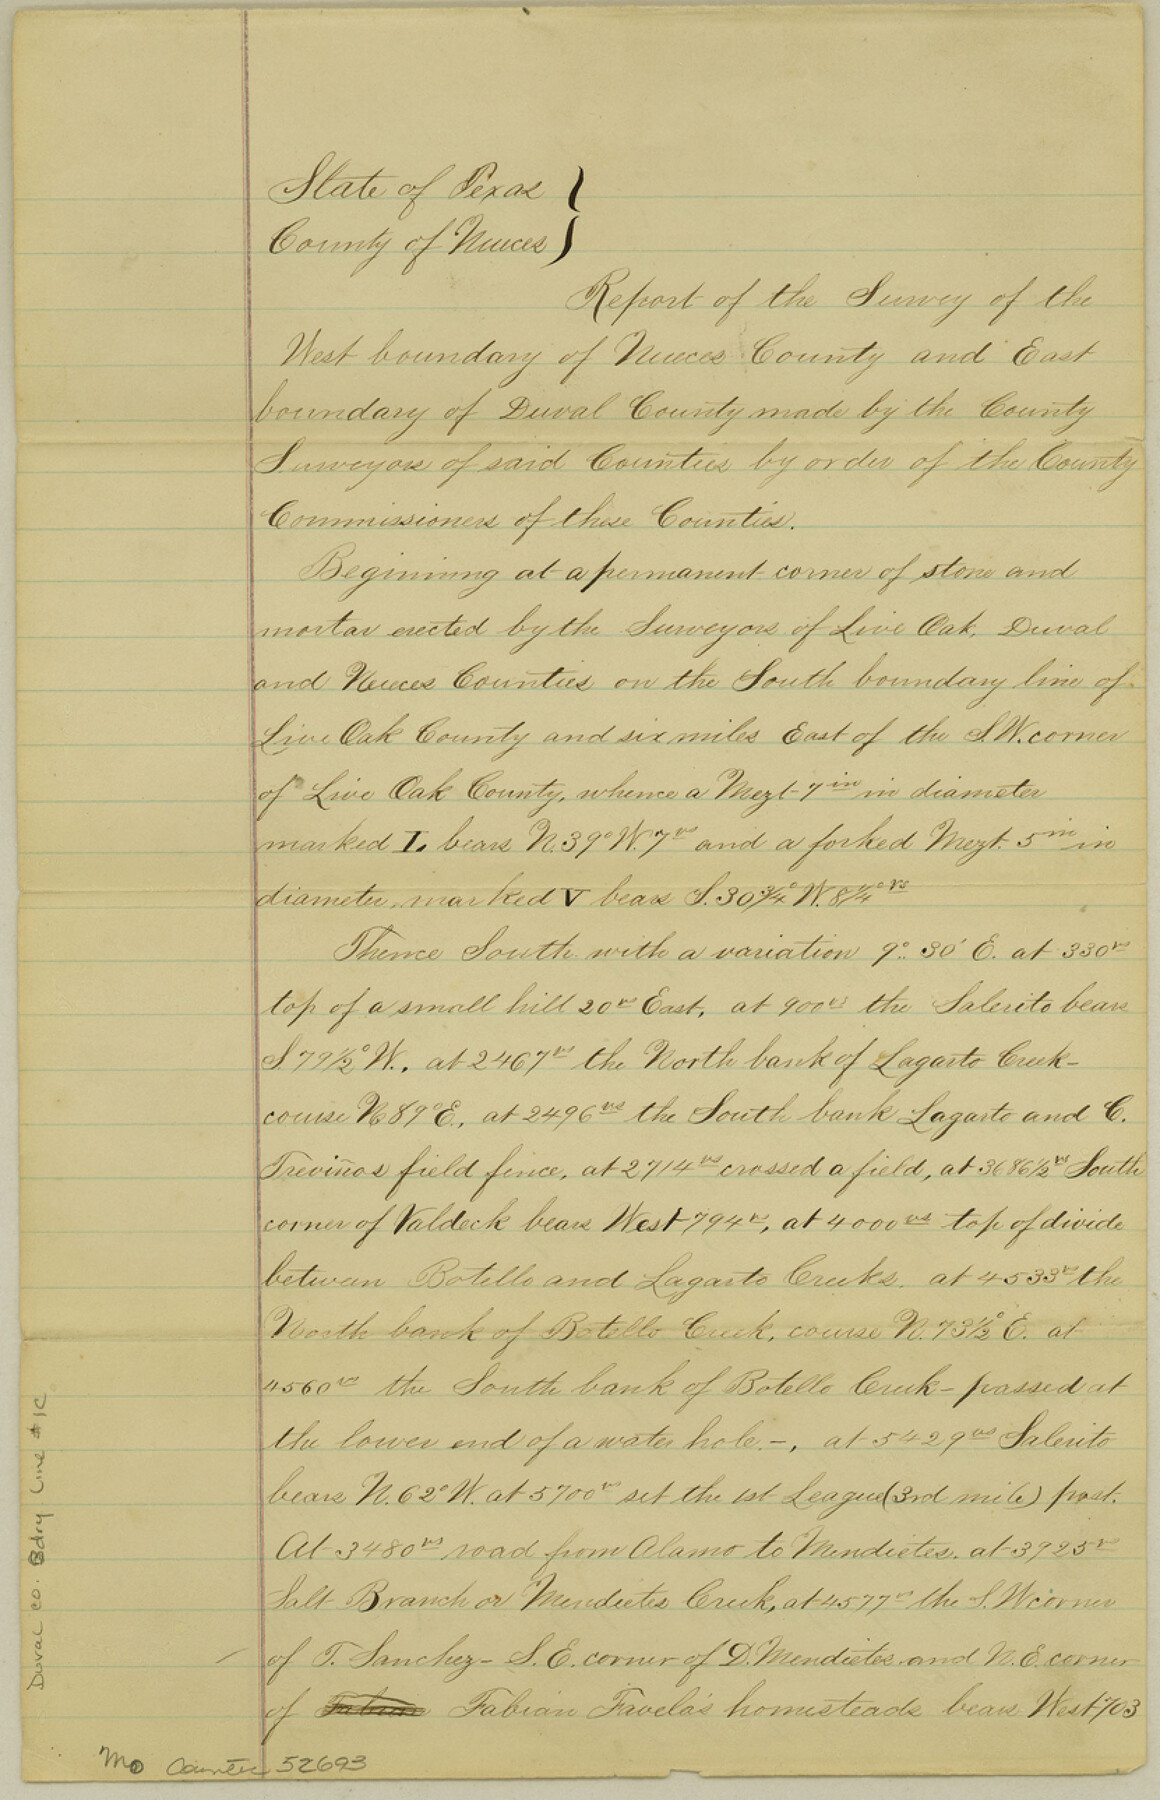 State of Texas }
County of Nueces }
Report of the Survey of the
West boundary of Nueces County and East
boundary of Duval County made by the County
Surveyors of said Counties by order of the County
Commissioners of these Counties.
Beginning at a permanent corner of stone and
mortar erected by the Surveyors of Live Oak, Duval
and Nueces Counties on the South boundary line of
Live Oak County and six miles East of the S.W. corner
of Live Oak County, whence a Mezt 7 in in diameter
marked L bears N. 39° W. 7 vs and a forked Mezt. 5 in in
diameter, marked V bears S. 30 3/4° W. 8 1/4 vs
Thence South with a variation 9° 30' E. at 330 vs
top of a small hill 20 vs East, at 900 vs the Salerito bears
S 79 1/2° W., at 2467 vs the North bank of Lagarto Creek-
course N 89° E., at 2496 vs the South bank Lagarto and C.
Treviños field fence, at 2714 vs crossed a field, at 3686 1/2 vs South
corner of Valdeck bears West 794 vs, at 4000 vs top of divide
between Botello and Lagarto Creeks. at 4533 vs the
North bank of Botello Creek, course N. 73 1/2° E. at
4560 vs the South bank of Botello Creek - passed at
the lower end of a water hole. -, at 5429 vs Salerito
bears N. 62° W. at 5700 vs set the 1st League (3rd mile) post.
At 3480 vs road from Alamo to Mendietes. at 3925 vs
Salt Branch or Mendietes Creek, at 4577 vs the S. W corner
of T. Sanchez - S. E. corner of D. Mendietes and N. E. corner
of Fabian Favela's homesteads bears West 703
Duval Co. Bdry Line #1C
Counter 52693